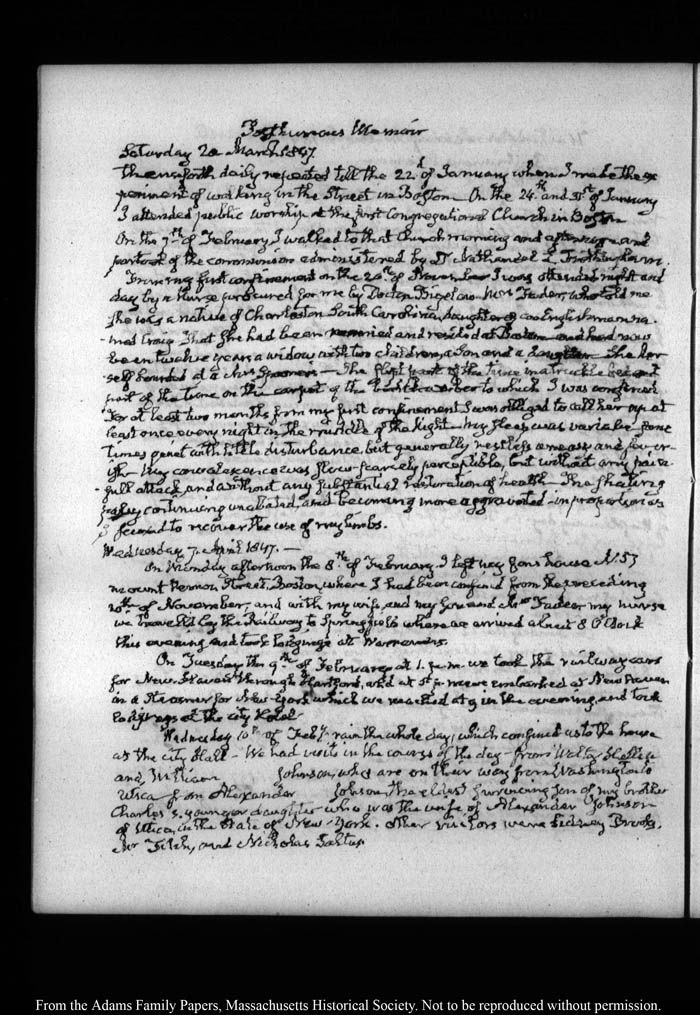 Posthumous Memoir
Saturday 20 March 1847.
thenceforth daily repeated till the 22d of January when I made the ex
periment of walking in the Street in Boston — On the 24th and 31st of January
I attended public worship at the first Congregational Church in Boston
On the 7th of February I walked to that Church morning and afternoon and
partook of the communion administered by Dr Nathaniel L. Frothingham.
From my first confinement on the 20th of November I was attended night and
day by a nurse procured for me by Doctor Bigelow Mrs Fader, who told me
she was a native of Charleston South Carolina, daughter of an Englishman na
med Craig That she had been married and resided at Boston and had now
been twelve years a widow with two children, a Son and a daughter. She her
self boarded at a Mrs — The first part of the time
part of the time on the carpet of the to which I was confined
For at least two months from my first confinement I was obliged to call her up at
least once every night in the middle of the night — My sleep was variable some
times quiet with little disturbance, but generally restless uneasy and fever
ish. My convalescence was slow — scarcely perceptible, but without any pain
full attack and without any substantial restoration of health — The shaking
palsy continuing unabated, and becoming more aggravated in proportion as
I seemed to recover the use of my limbs.
Wednesday 7. April 1847. —
On Monday afternoon the 8th of February, I left my Sons house N. 57
mount Vernon Street, Boston, where I had been confined from the preceding
20th of November, and with my wife, and my Son and Mrs Fader my nurse
we travelled by the Railway to Springfield where we arrived about 8 O'Clock
this evening and took lodgings at Warriner's.
On Tuesday the 9th of February, at 1. p.m. we took the railway cars
for New Haven through Hartford, and at 5 p.m. we embarked at New haven
in a Steamer for New-York which we reached at 9 in the evening, and took
lodgings at the City Hotel.
Wednesday 10th of Feby. rain the whole day, which confined us to the house
at the city Hall — We had visits in the course of the day — from
and William Johnson, who are on their way from Washington to
Utica from Alexander Johnson the eldest surviving Son of my brother
Charles's younger daughter who was the wife of Alexander Johnson
of Utica, in the State of New-York. Other visitors were Sidney Brooks,
Mr and Nicholas Saltus.
From the Adams Family Papers, Massachusetts Historical Society. Not to be reproduced without permission.